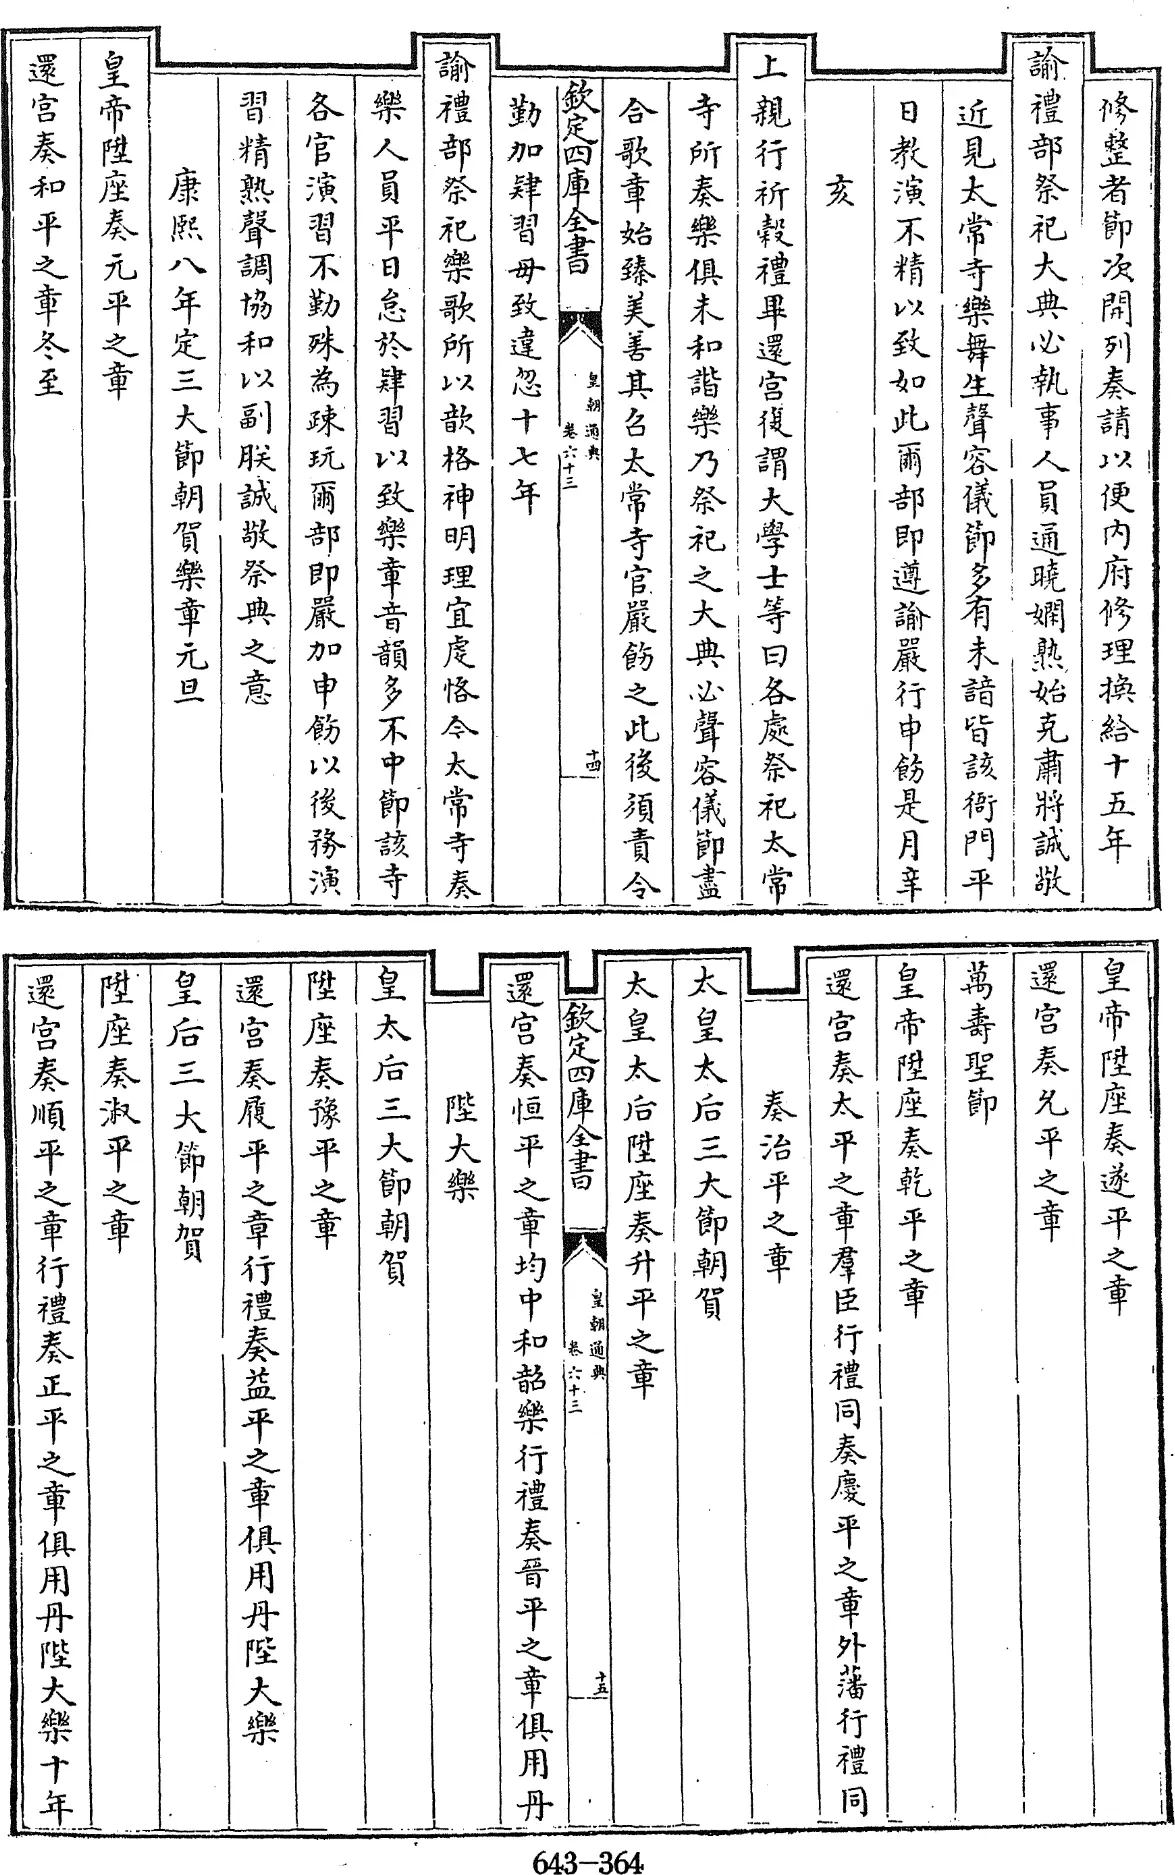 修整者節次開列奏請以便内府修理換給十五年
諭禮部祭祀大典必執事人員通曉嫻熟始克肅將誠敬
近見太常寺樂舞生聲容儀節多有未諳皆該衙門平
日教演不精以致如此爾部即遵諭嚴行申飭是月辛
亥
上親行祈穀禮畢還宫後謂大學士等曰各處祭祀太常
寺所奏樂俱未和諧樂乃祭祀之大典必聲容儀節盡
合歌章始臻美善其召太常寺官嚴飭之此後須責令
欽定四庫全書
皇朝通典
卷六十三
十四
勤加肄習毋致違忽十七年
諭禮部祭祀樂歌所以歆格神明理宜虔恪令太常寺奏
樂人員平日怠於肄習以致樂章音韻多不中節該寺
各官演習不勤殊為疎玩爾部即嚴加申飭以後務演
習精熟聲調協和以副朕誠敬祭典之意
康熙八年定三大節朝賀樂章元旦
皇帝陞座奏元平之章
還宫奏和平之章冬至
皇帝陞座奏遂平之章
還宫奏允平之章
萬壽聖節
皇帝陞座奏乾平之章
還宫奏太平之章羣臣行禮同奏慶平之章外藩行禮同
奏治平之章
太皇太后三大節朝賀
太皇太后陞座奏升平之章
欽定四庫全書
皇朝通典
卷六十三
十五
還宫奏恒平之章均中和韶樂行禮奏晉平之章俱用丹
陛大樂
皇太后三大節朝賀
陞座奏豫平之章
還宫奏履平之章行禮奏益平之章俱用丹陛大樂
皇后三大節朝賀
陞座奏淑平之章
還宫奏順平之章行禮奏正平之章俱用丹陛大樂十年
643-364